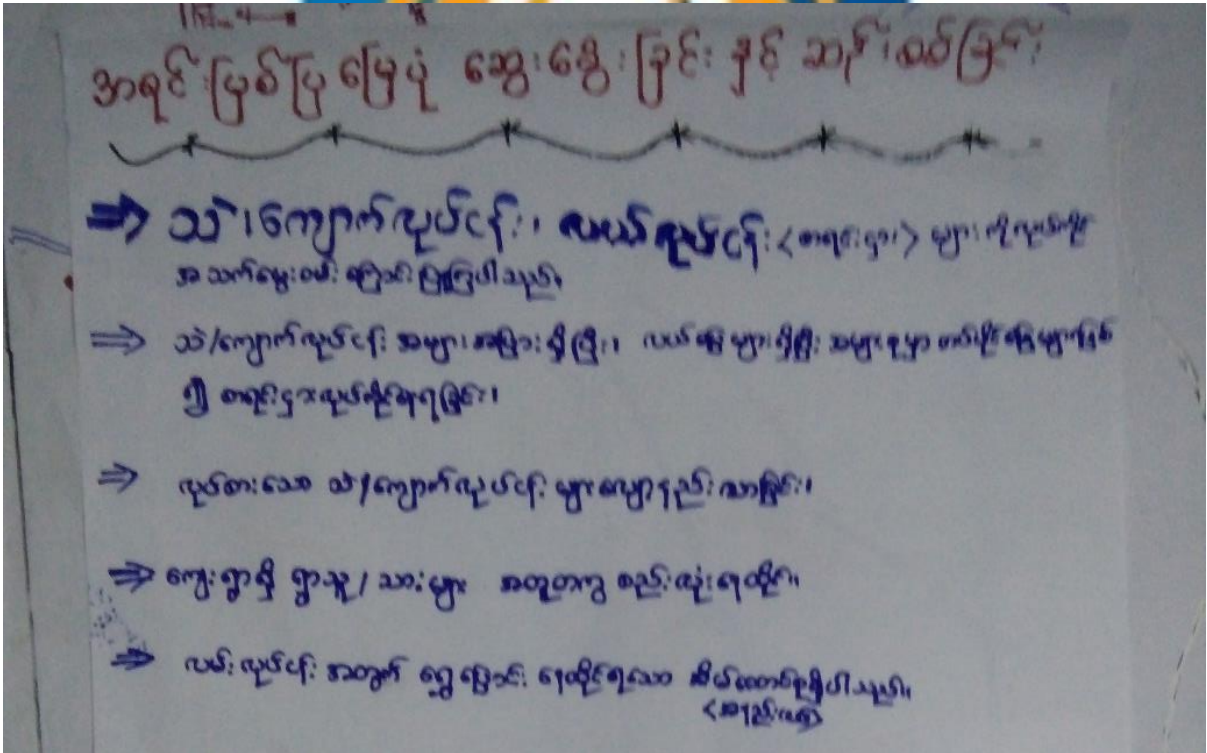 အရင်းပြစ်ပြုမြေပုံ ဆွေးနွေးခြင်း နှင့် ဆန်းစစ်ခြင်း
⇒ သဲ၊ကျောက်လုပ်ငန်း၊ လယ်လုပ်ငန်း <စာရင်းငှား> များ ကိုလုပ်ကိုင်
အသက်မွေးဝမ်းကြောင်းပြုကြပါသည်။
⇒ သဲ/ကျောက်လုပ်ငန်း အများအပြားရှိပြီး၊ လယ်မြေများရှိပြီး အများစုမှာ တပ်ပိုင်မြေများဖြစ်
၍ စာရင်းငှားလုပ်ကိုင်နေရခြင်း။
⇒ လုပ်စားသော သဲ/ကျောက်လုပ်ငန်း များလျော့နည်းလာခြင်း။
⇒ ကျေးရွာရှိ ရွာသူ/သားများ အတူတကွ စည်းလုံးရေထိုင်။
⇒ လမ်းလုပ်ငန်း အတွက် ရွှေ့ပြောင်း နေထိုင်ရသော အိမ်ထောင်စုရှိပါသည်။
<အနည်းငယ်>